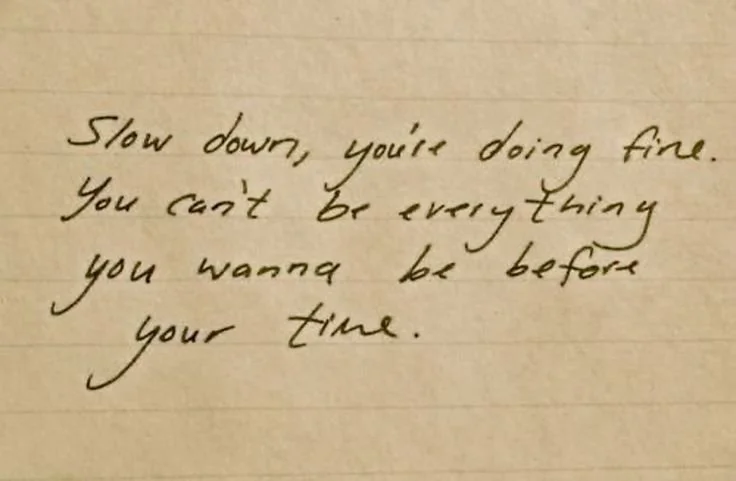 Slow down, you're doing fine.
You can't be everything
you wanna be before
your time.